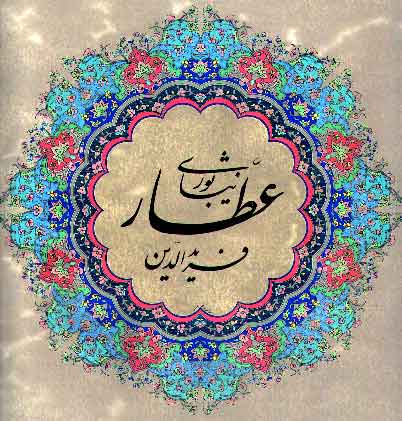 نیشابوری
عطّار
فریدالدّین